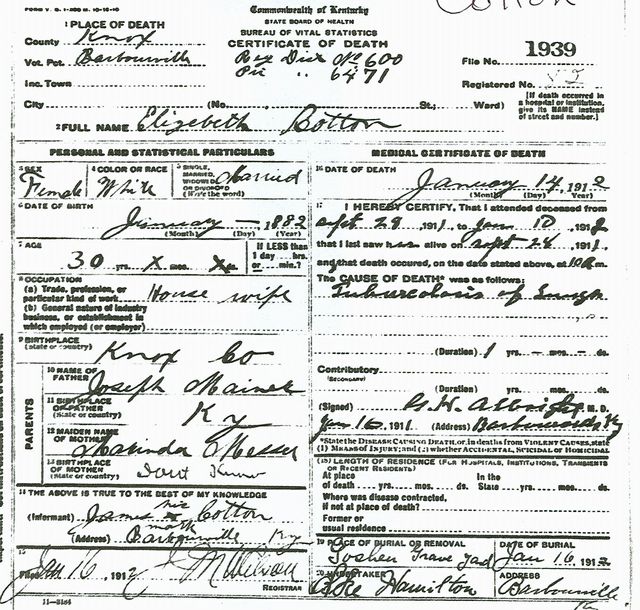 FORM V. S. 1-
Cotton
Commonwealth of Kentucky
STATE BOARD OF HEALTH
BUREAU OF VITAL STATISTICS
CERTIFICATE OF DEATH
1 PLACE OF DEATH
County Knox
Vot. Pct. Barbourville
Inc. Town
City (No. St.; Ward)
Reg Dist No 600
Pri " 6471
File No. 1939
Registered No.
[If death occurred in
a hospital or institution,
give its NAME instead
of street and number.]
2 FULL NAME Elizebeth Cotton
PERSONAL AND STATISTICAL PARTICULARS
3 SEX Female
4 COLOR OR RACE White
5 SINGLE, MARRIED, WIDOWED OR DIVORCED (Write the word) Married
6 DATE OF BIRTH January — 1882
(Month) (Day) (Year)
7 AGE 30 yrs. X mos. X ds.
If LESS than
1 day ... hrs.
or ... min.?
8 OCCUPATION
(a) Trade, profession, or
particular kind of work House wife
(b) General nature of industry
business, or establishment in
which employed (or employer)
9 BIRTHPLACE
(State or country) Knox Co
PARENTS
10 NAME OF
FATHER Joseph
11 BIRTHPLACE
OF FATHER
(State or country) Ky
12 MAIDEN NAME
OF MOTHER Malinda Messer
13 BIRTHPLACE
OF MOTHER
(State or country) Dont Know
14 THE ABOVE IS TRUE TO THE BEST OF MY KNOWLEDGE
(Informant) James his x mark Cotton
(Address) Barbourville Ky
15
Filed Jan 16, 1912 Wilson
REGISTRAR
11—3184
MEDICAL CERTIFICATE OF DEATH
16 DATE OF DEATH
January 14, 1912
(Month) (Day) (Year)
17 I HEREBY CERTIFY, That I attended deceased from
Sept 28, 1911, to Jan 10, 1912
that I last saw her alive on Sept 28, 1911,
and that death occured, on the date stated above, at m.
The CAUSE OF DEATH* was as follows:
Tuburculosis of Lungs
(Duration) 1 yrs. — mos. — ds.
Contributory
(SECONDARY)
(Duration) yrs. mos. ds.
(Signed) Albright, M. D.
Jan 16, 191 (Address) Barbourville Ky
*State the DISEASE CAUSING DEATH, or, in deaths from VIOLENT CAUSES, state
(1) MEANS OF INJURY; and (2) whether ACCIDENTAL, SUICIDAL or HOMICIDAL
18 LENGTH OF RESIDENCE (FOR HOSPITALS, INSTITUTIONS, TRANSIENTS
OR RECENT RESIDENTS)
At place In the
of death yrs. mos. ds. State yrs. mos. ds.
Where was disease contracted,
if not at place of death?
Former or
usual residence
19 PLACE OF BURIAL OR REMOVAL
Goshen Grave Yard
DATE OF BURIAL
Jan 16, 1912
20 UNDERTAKER
Hamilton
ADDRESS
Barbourville